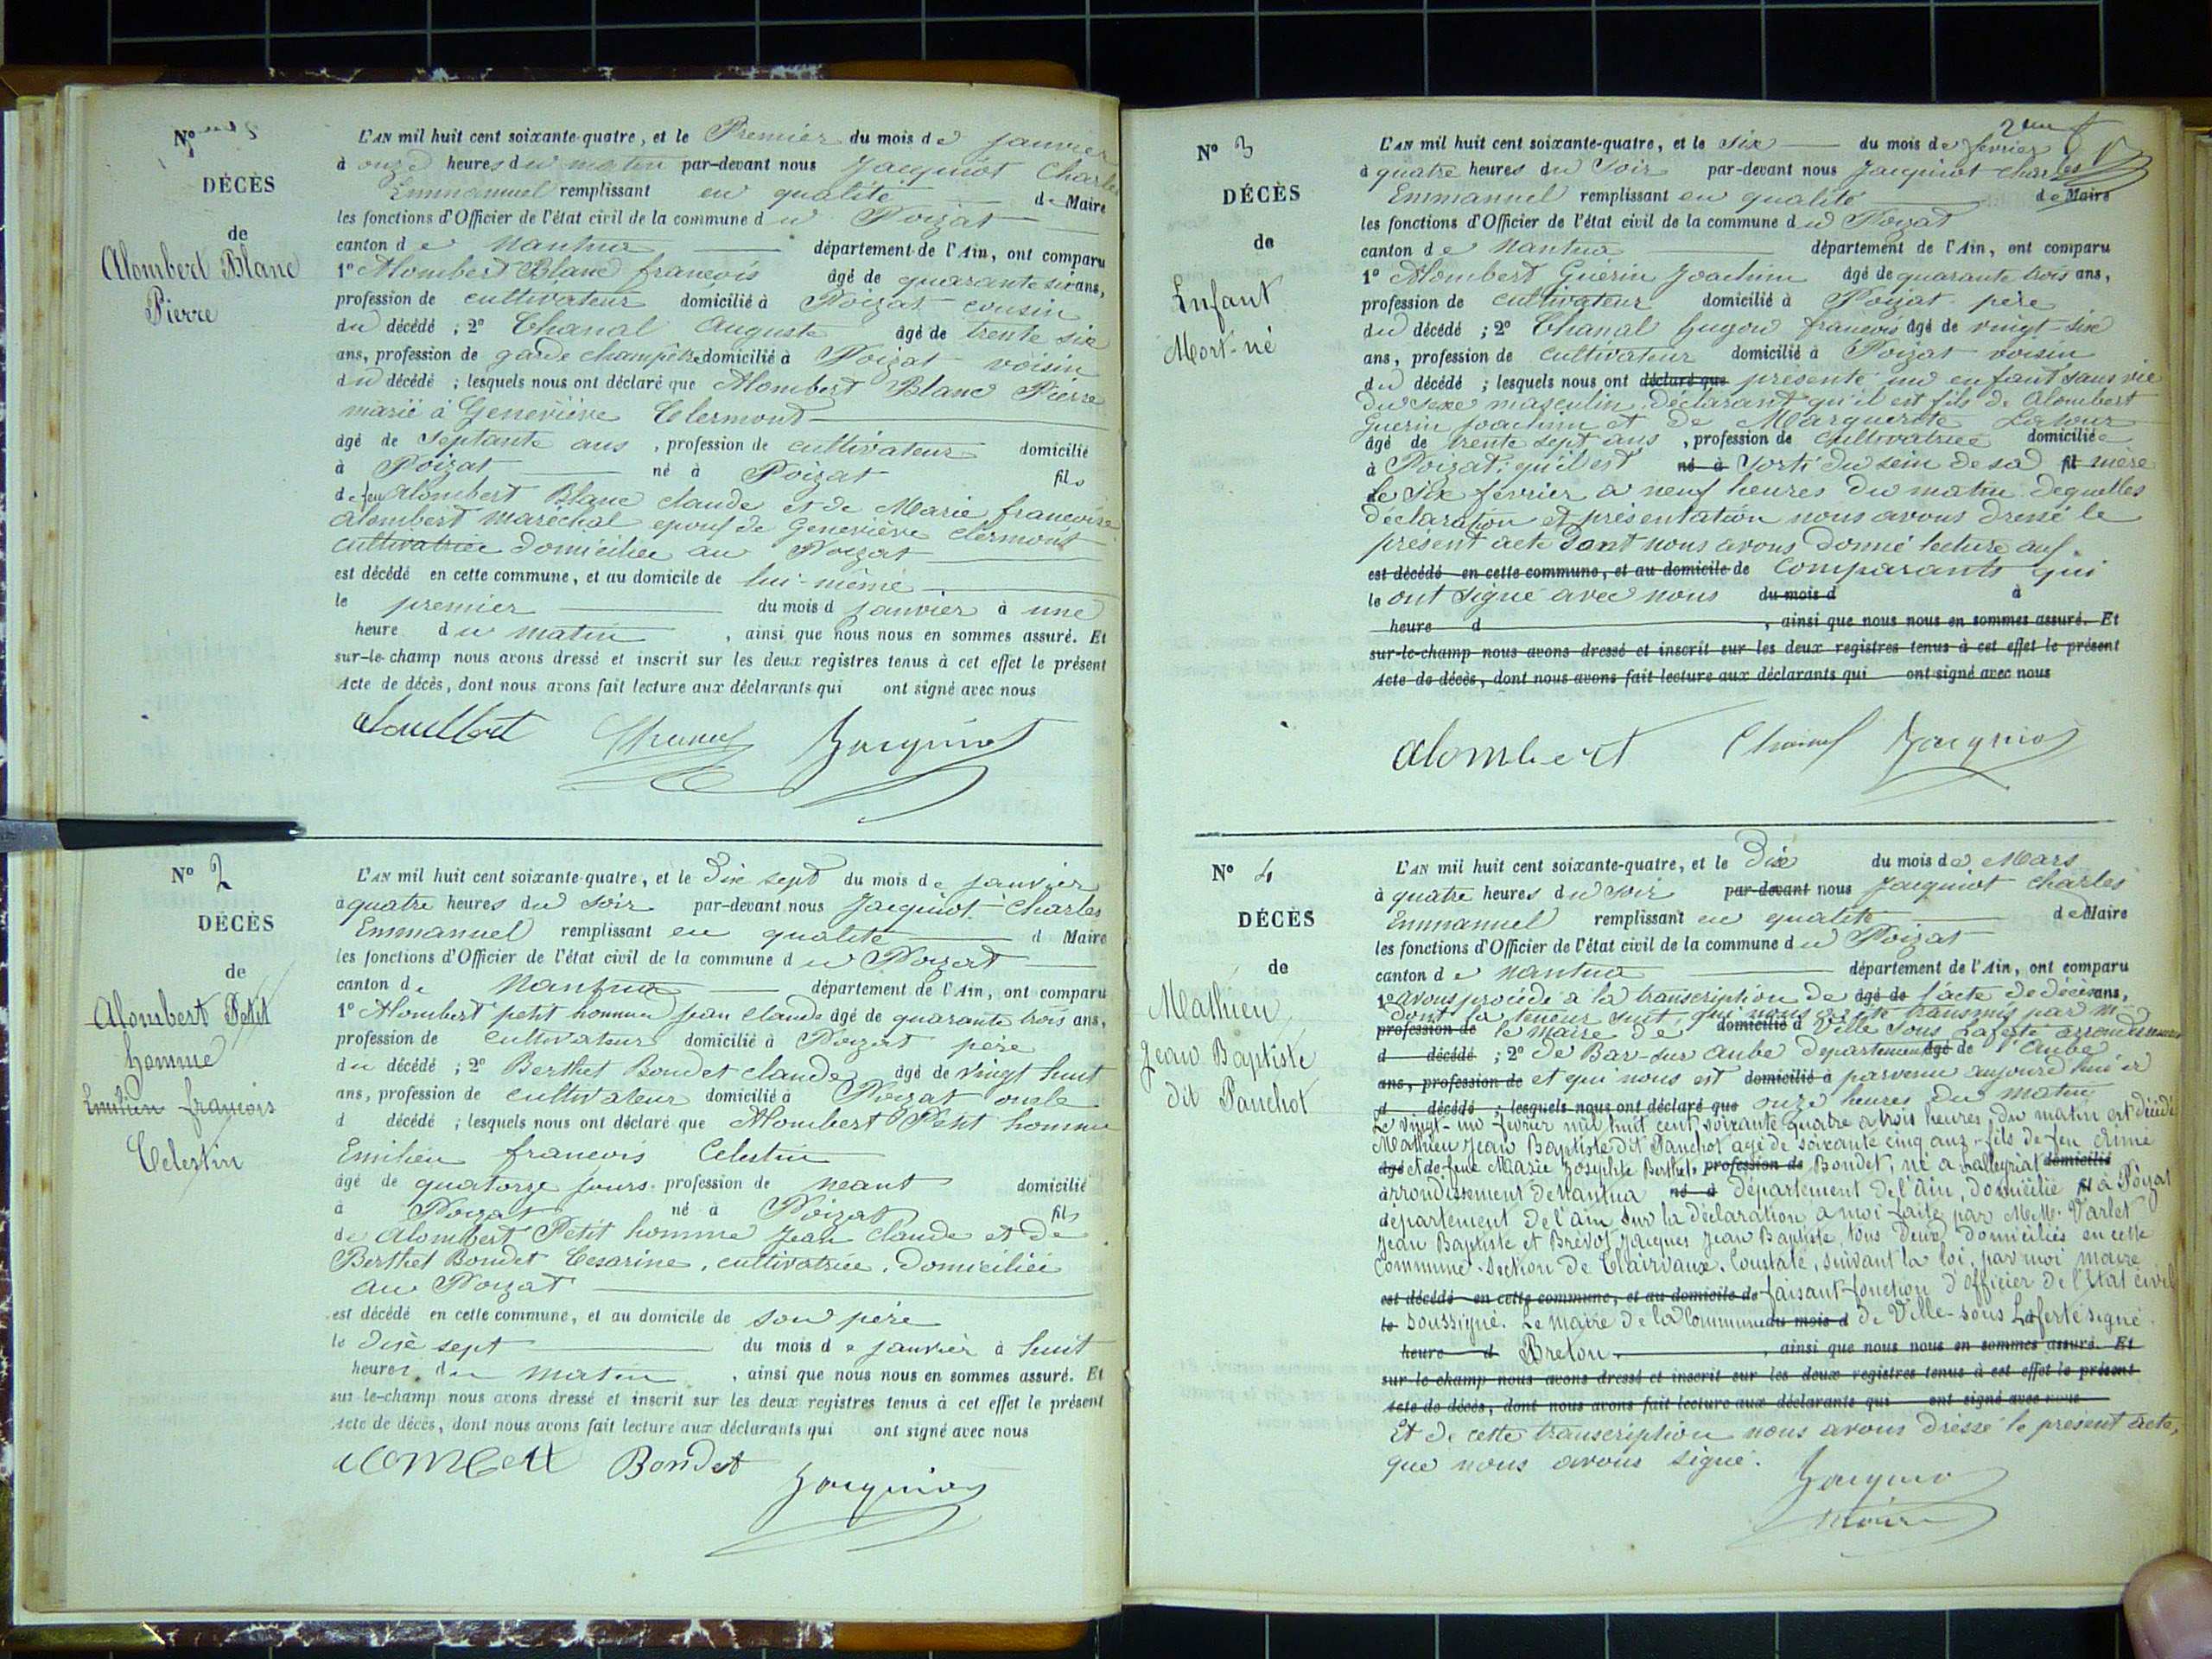 N°
DÉCÈS
de
Alombert Blanc
Pierre
L'AN mil huit cent soixante-quatre, et le Premier du mois de janvier
à onze heures du matin par-devant nous Jacquiot Charles
Emmanuel remplissant en qualité de Maire
les fonctions d'Officier de l'état civil de la commune du Poizat
canton de Nantua département de l'Ain, ont comparu
1° Alombert Blanc françois âgé de quarante six ans,
profession de cultivateur domicilié à Poizat cousin
du décédé ; 2° Chanal Auguste âgé de trente six
ans, profession de garde champêtre domicilié à Poizat voisin
du décédé ; lesquels nous ont déclaré que Alombert Blanc Pierre
marié à Geneviève Clermont
âgé de septante ans , profession de cultivateur domicilié
à Poizat né à Poizat fils
de feu Alombert Blanc claude et de Marie françoise
Alombert maréchal epoux de Geneviève clermont
cultivatrice domiciliée au Poizat
est décédé en cette commune, et au domicile de lui-même
le premier du mois d janvier à une
heure du matin , ainsi que nous nous en sommes assuré. Et
sur-le-champ nous avons dressé et inscrit sur les deux registres tenus à cet effet le présent
Acte de décès, dont nous avons fait lecture aux déclarants qui ont signé avec nous
Chanal Jacquiot
N° 2
DÉCÈS
de
Alombert Petit
homme
Emilien françois
Celestin
L'AN mil huit cent soixante-quatre, et le dix sept du mois de janvier
à quatre heures du soir par-devant nous Jacquiot Charles
Emmanuel remplissant en qualité d Maire
les fonctions d'Officier de l'état civil de la commune du Poizat
canton de Nantua département de l'Ain, ont comparu
1° Alombert petit homme jean claude âgé de quarante trois ans,
profession de cultivateur domicilié à Poizat père
du décédé ; 2° Berthet Bondet claude âgé de vingt huit
ans, profession de cultivateur domicilié à Poizat oncle
d décédé ; lesquels nous ont déclaré que Alombert Petit homme
Emilien francois Celestin
âgé de quatorze jours profession de neant domicilié
à Poizat né à Poizat fils
de Alombert Petit homme Jean Claude et de
Berthet Bondet Cesarine, cultivatrice, domiciliée
au Poizat
est décédé en cette commune, et au domicile de son père
le dix sept du mois de janvier à huit
heures du matin , ainsi que nous nous en sommes assuré. Et
sur-le-champ nous avons dressé et inscrit sur les deux registres tenus à cet effet le présent
Acte de décès, dont nous avons fait lecture aux déclarants qui ont signé avec nous
Bondet Jacquiot
N° 3
DÉCÈS
de
Enfant
Mort-né
L'AN mil huit cent soixante-quatre, et le six du mois de fevrier
à quatre heures du Soir par-devant nous Jacquiot Charles
Emmanuel remplissant en qualité de Maire
les fonctions d'Officier de l'état civil de la commune du Poizat
canton de Nantua département de l'Ain, ont comparu
1° Alombert Guerin Joachim âgé de quarante trois ans,
profession de cultivateur domicilié à Poizat père
du décédé ; 2° Chanal hugon francois âgé de vingt-six
ans, profession de cultivateur domicilié à Poizat voisin
du décédé ; lesquels nous ont déclaré que présenté un enfant sans vie
du sexe masculin, déclarant qu'il est fils de Alombert
Guerin Joachim et de Marguerite Latour
âgé de trente sept ans , profession de cultivatrice domiciliée
à Poizat; qu'il est né à sorti du sein de sa fil mère
le six fevrier a neuf heures du matin desquelles
déclaration et présentation nous avons dressé le
présent acte dont nous avons donné lecture aux
est décédé en cette commune, et au domicile de comparants qui
le ont signé avec nous du mois d à
heure d , ainsi que nous nous en sommes assuré. Et
sur-le-champ nous avons dressé et inscrit sur les deux registres tenus à cet effet le présent
Acte de décès, dont nous avons fait lecture aux déclarants qui ont signé avec nous
alombert Chanal Jacquiot
N° 4
DÉCÈS
de
Mathieu
Jean Baptiste
dit Panchot
L'AN mil huit cent soixante-quatre, et le dix du mois de Mars
à quatre heures du soir par-devant nous Jacquiot Charles
Emmanuel remplissant en qualité de Maire
les fonctions d'Officier de l'état civil de la commune du Poizat
canton de Nantua département de l'Ain, ont comparu
1° avons procédé à la transcription de âgé de l'acte de décès ans,
dont la teneur suit, qui nous a été transmis par M
profession de le maire de domicilié à Ville sous Laferté arrondissement
d décédé ; 2° de Bar-sur Aube departement âgé de l'Aube
ans, profession de et qui nous est domicilié à parvenu aujourd'hui à
d décédé ; lesquels nous ont déclaré que onze heures du matin
Le vingt-un fevrier mil huit cent soixante quatre a trois heures du matin est décédé
Mathieu Jean Baptiste dit Panchot agé de soixante cinq ans, fils de feu Aimé
âgé et de feue Marie Josephte Berthet profession de Bondet, né a Lalleyriat domicilié
arrondissement de Nantua né à département de l'Ain, domicilié fil à Poizat
département de l'ain sur la déclaration a moi faite par M.M. Varlet
Jean Baptiste et Brévot Jacques Jean Baptiste, tous deux domiciliés en cette
Commune section de Clairvaux. Constaté, suivant la loi, par moi maire
est décédé en cette commune, et au domicile de faisant fonction d'Officier de l'Etat civil
le soussigné. Le maire de la Commune du mois d de Ville-sous Laferté signé
heure d Breton. , ainsi que nous nous en sommes assuré. Et
sur-le-champ nous avons dressé et inscrit sur les deux registres tenus à cet effet le présent
Acte de décès, dont nous avons fait lecture aux déclarants qui ont signé avec nous
Et de cette transcription nous avons dressé le present acte,
que nous avons signé. Jacquiot
maire